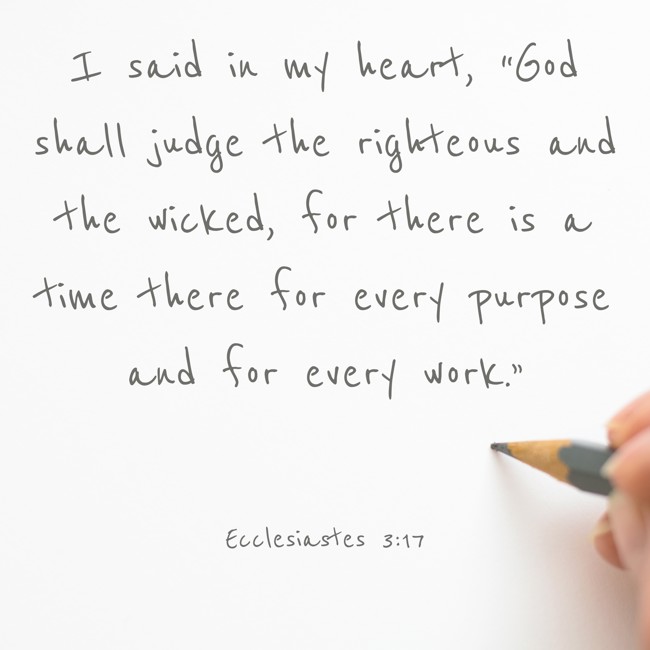 I said in my heart, "God
shall judge the righteous and
the wicked, for there is a
time there for every purpose
and for every work."
Ecclesiastes 3:17